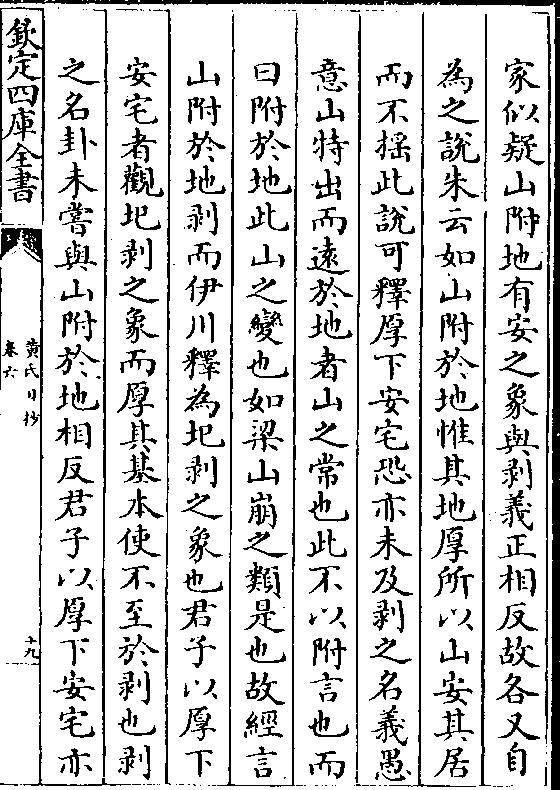 家似疑山附地有安之象與剥義正相反故各又自
為之說朱云如山附於地惟其地厚所以山安其居
而不揺此說可釋厚下安宅恐亦未及剥之名義愚
意山特出而遠於地者山之常也此不以附言也而
曰附於地此山之變也如梁山崩之類是也故經言
山附於地剥而伊川釋為圮剥之象也君子以厚下
安宅者觀圮剥之象而厚其基本使不至於剥也剥
之名卦未嘗與山附於地相反君子以厚下安宅亦
欽定四庫全書
黄氏日抄
卷六
十九